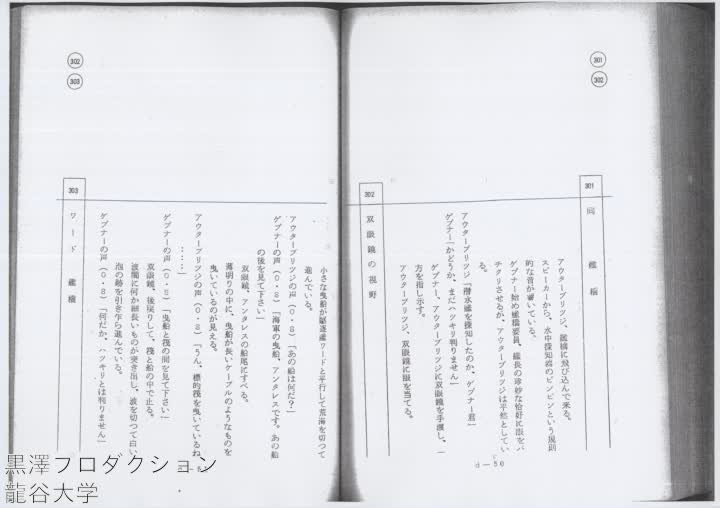 301
302
301
同 艦橋
アウターブリッジ、艦橋に飛び込んで来る。
スピーカーから、水中探知器のピンピンという規則
的な音が響いている。
ゲブナー始め艦橋要員、艦長の珍妙な恰好に眼をパ
チクリさせるが、アウターブリッジは平然としてい
る。
アウターブリッジ「潜水艦を探知したのか、ゲブナー君」
ゲブナー「かどうか、まだハッキリ判りません」
ゲブナー、アウターブリッジに双眼鏡を手渡し、一
方を指し示す。
アウターブリッジ、双眼鏡に眼を当てる。
302
双眼鏡の視野
d—50
302
303
小さな曳船が駆逐艦ワードと平行して荒海を切って
進んでいる。
アウターブリッジの声(O・S)「あの船は何だ?」
ゲブナーの声(O・S)「海軍の曳船、アンタレスです。あの船
の後を見て下さい」
双眼鏡、アンタレスの船尾にすべる。
薄明りの中に、曳船が長いケーブルのようなものを
曳いているのが見える。
アウターブリッジの声(O・S)「うん、標的筏を曳いているね
……」
ゲブナーの声(O・S)「曳船と筏の間を見て下さい」
双眼鏡、後戻りして、筏と船の中で止る。
波間に何か細長いものが突き出し、波を切って白い
泡の跡を引き乍ら進んでいる。
ゲブナーの声(O・S)「何だか、ハッキリとは判りません」
303
ワード 艦橋
黒澤プロダクション
龍谷大学